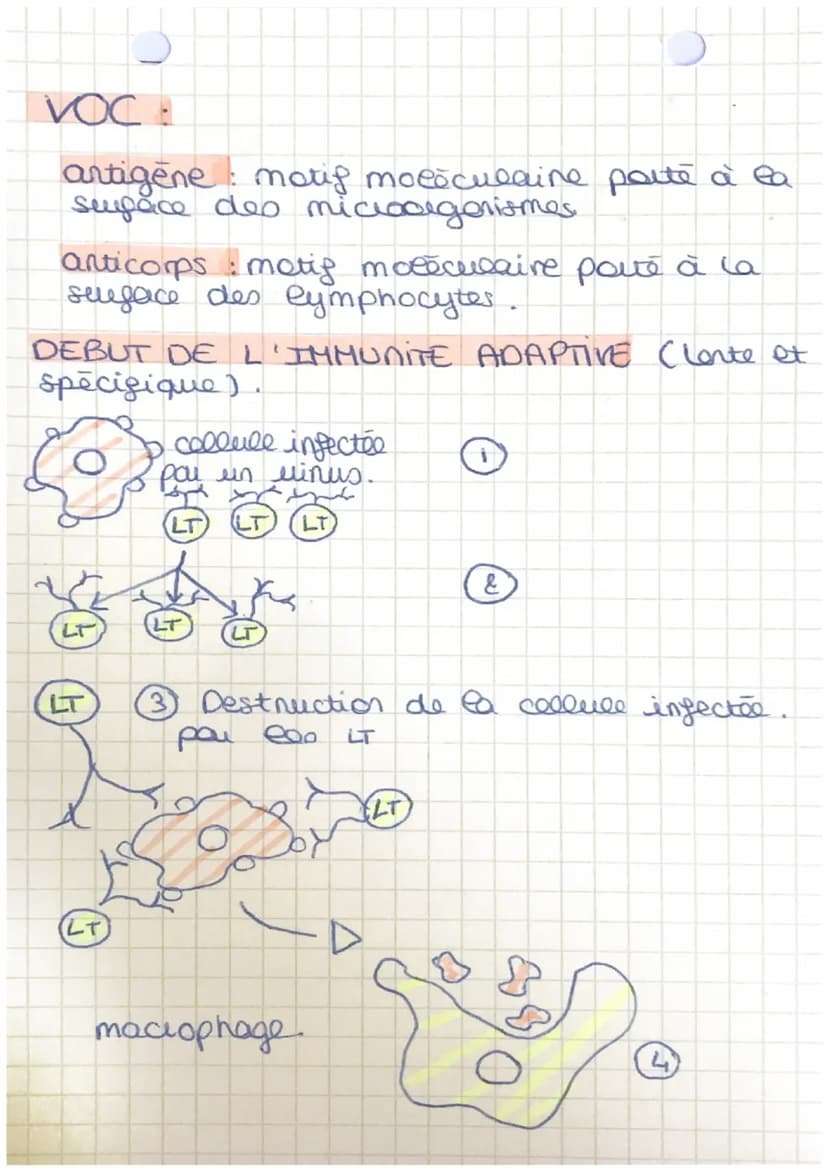 VOC :
antigène : motif moléculaire porté à la
surface des microorganismes
anticorps : motif moléculaire porté à la
surface des lymphocytes.
DEBUT DE L'IMMUNITE ADAPTIVE (lente et
spécifique).
cellule infectée
par un virus.
1
LT LT LT
2
LT LT LT
LT
3 Destruction de la cellule infectée.
par les LT
LT
LT
macrophage.
4